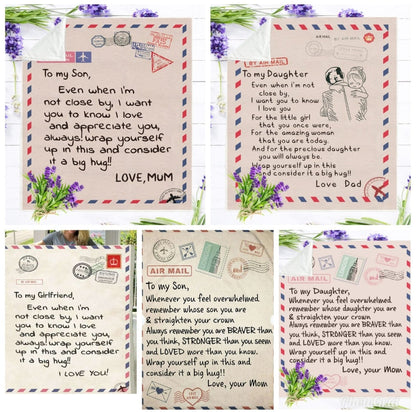 To my Son,
Even when i'm
not close by, I want
you to know I love
and appreciate you,
always! wrap yourself
up in this and consider
it a big hug!!
LOVE, MUM
AIR MAIL
BY AIR MAIL
To my Daughter
Even when i'm not
close by,
I want you to know
I love you
For the little girl
that you once were,
For the amazing woman
that you are today.
And for the precious daughter
you will always be.
Wrap yourself up in this
and consider it a big hug!!
Love Dad
To my Girlfriend,
Even when i'm
not close by, I want
you to know I love
and appreciate you,
always! wrap yourself
up in this and consider
it a big hug!!
I LOVE YOU!
AIR MAIL
To my Son,
Whenever you feel overwhelmed
remember whose son you are
& straighten your crown
Always remember you are BRAVER than
you think, STRONGER than you seem
and LOVED more than you know.
Wrap yourself up in this and
consider it a big hug!!
Love, your Mom
AIR MAIL
To my Daughter,
Whenever you feel overwhelmed
remember whose daughter you are
& straighten your crown
Always remember you are BRAVER than
you think, STRONGER than you seem
and LOVED more than you know.
Wrap yourself up in this and
consider it a big hug!!
Love, your Mom